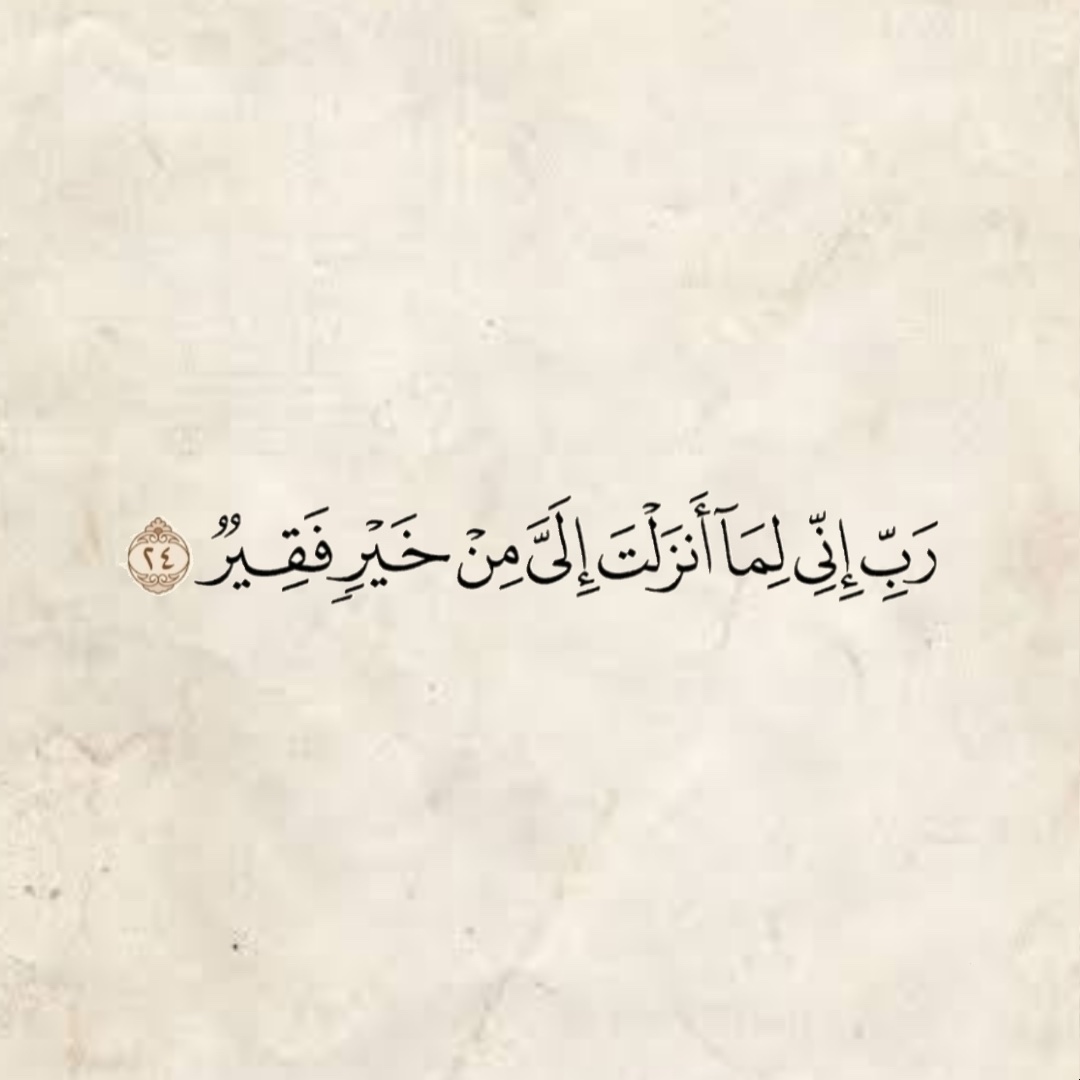 رَبِّ إِنِّي لِمَآ أَنزَلْتَ إِلَىَّ مِنْ خَيْرٍ فَقِيرٌ ٢٤